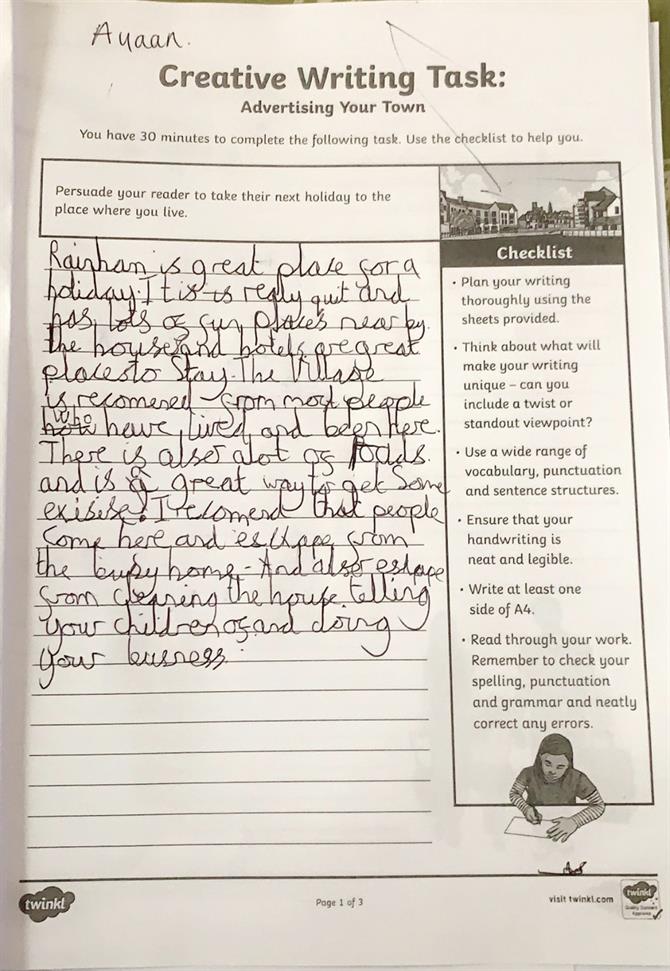 Ayaan.
Creative Writing Task:
Advertising Your Town
You have 30 minutes to complete the following task. Use the checklist to help you.
Persuade your reader to take their next holiday to the
place where you live.
Rainhan is great place for a
holiday. It is is realy quit and
has lots of fun places near by.
the houses and hotels are great
places to Stay. The Village
is recomened from most people
who
have lived and been here.
There is alser alot of Foods.
and is a great way to get Some
exisise. I recomend that people
Come here and eschape from
the busy home. And alser eshape
from cleaning the house. telling
your children of and doing
your busness.
Checklist
• Plan your writing
thoroughly using the
sheets provided.
• Think about what will
make your writing
unique – can you
include a twist or
standout viewpoint?
• Use a wide range of
vocabulary, punctuation
and sentence structures.
• Ensure that your
handwriting is
neat and legible.
• Write at least one
side of A4.
• Read through your work.
Remember to check your
spelling, punctuation
and grammar and neatly
correct any errors.
twinkl
Page 1 of 3
visit twinkl.com
twinkl
Quality Standard
Approved